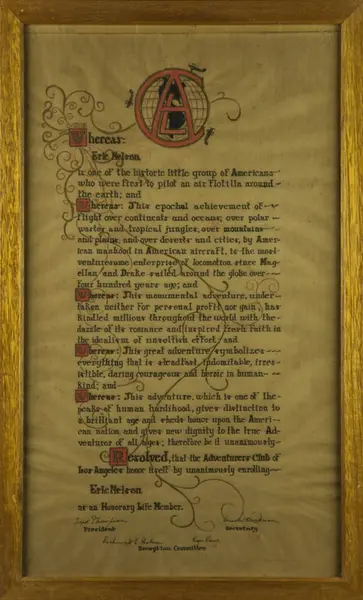 Whereas:
Eric Nelson
is one of the historic little group of Americans
who were first to pilot an air flotilla around
the earth; and
Whereas: This epochal achievement of
flight over continents and oceans; over polar
wastes and tropical jungles, over mountains
and plains, and over deserts and cities, by Amer-
ican manhood in American aircraft, is the most
venturesome enterprise of locomotion since Mag-
ellan and Drake sailed around the globe over
four hundred years ago; and
Whereas: This monumental adventure, under-
taken neither for personal profit nor gain, has
kindled millions throughout the world with the
dazzle of its romance and inspired fresh faith in
the idealism of unselfish effort; and
Whereas: This great adventure symbolizes
everything that is steadfast, indomitable, irres-
istible, daring, courageous and heroic in human-
kind; and
Whereas: This adventure, which is one of the
peaks of human hardihood, gives distinction to
a brilliant age and sheds honor upon the Ameri-
can nation, and gives new dignity to the true Ad-
venturer of all ages; therefore be it unanimously
Resolved, that the Adventurers Club of
Los Angeles honor itself by unanimously enrolling
Eric Nelson
as an Honorary Life Member.
President
Secretary
Committee